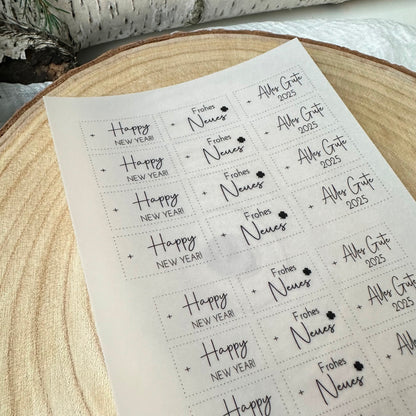 Happy
NEW YEAR!
Frohes
Neues
Alles Gute
2025
Happy
NEW YEAR!
Frohes
Neues
Alles Gute
2025
Happy
NEW YEAR!
Frohes
Neues
Alles Gute
2025
Happy
NEW YEAR!
Frohes
Neues
Alles Gute
2025
Happy
NEW YEAR!
Frohes
Neues
Alles Gute
2025
Happy
NEW YEAR!
Frohes
Neues
Alles Gute
2025
Happy
Frohes
Neues
Alles